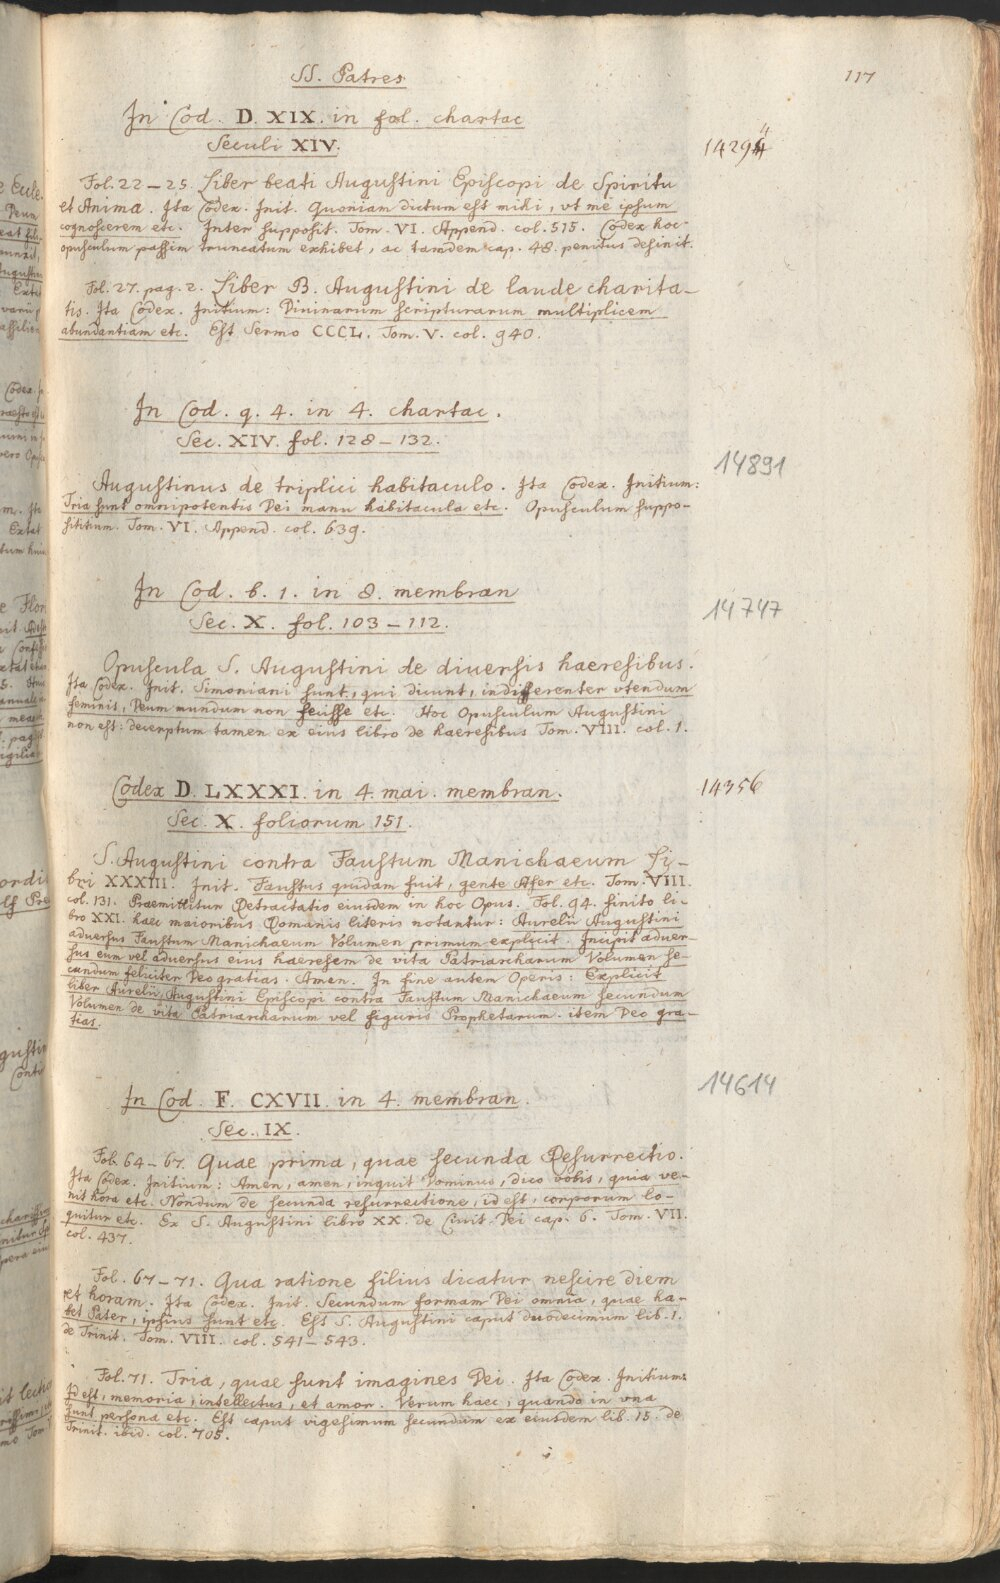 SS. Patres
117
In Cod. D. XIX. in fol. chartac
Seculi XIV.
14294
Fol. 22–25. Liber beati Augustini Episcopi de Spiritu
et Anima. Ita Codex. Init. Quoniam dictum est mihi, ut me ipsum
cognoscerem etc. Inter supposit. Tom. VI. Append. col. 515. Codex hoc
opusculum passim truncatum exhibet, ac tamdem cap. 48. penitus desinit.
Fol. 27. pag. 2. Liber B. Augustini de laude charita–
tis. Ita Codex. Initium: Divinarum scripturarum multiplicem
abundantiam etc. Est Sermo CCCL. Tom. V. col. 940.
In Cod. q. 4. in 4. chartac.
Sec. XIV. fol. 128–132.
14891
Augustinus de triplici habitaculo. Ita Codex. Initium:
Tria sunt omnipotentis Dei manu habitacula etc. Opusculum suppo–
sititium. Tom. VI. Append. col. 639.
In Cod. b. 1. in 8. membran
Sec. X. fol. 103–112.
14747
Opuscula S. Augustini de diversis haeresibus.
Ita Codex. Init. Simoniani sunt, qui dicunt, indifferenter utendum
feminis, Deum mundum non fecisse etc. Hoc Opusculum Augustini
non est: decerptum tamen ex eius libro de haeresibus Tom. VIII. col. 1.
Codex D. LXXXI. in 4. mai. membran.
Sec. X. foliorum 151.
14356
S. Augustini contra Faustum Manichaeum Li–
bri XXXIII. Init. Faustus quidam fuit, gente Afer etc. Tom. VIII.
col. 131. Praemittitur Retractatio eiusdem in hoc Opus. Fol. 94. finito li–
bro XXI. haec maioribus Romanis literis notantur: Aurelii Augustini
adversus Faustum Manichaeum Volumen primum explicit. Incipit adver–
sus eum vel adversus eius haeresem de vita Patriarcharum Volumen se–
cundum feliciter Deo gratias. Amen. In fine autem Operis: Explicit
liber Aurelii Augustini Episcopi contra Faustum Manichaeum secundum
Volumen de vita Patriarcharum vel figuris Prophetarum. item Deo gra–
tias.
In Cod. F. CXVII. in 4. membran.
Sec. IX.
14614
Fol. 64–67. Quae prima, quae secunda Resurrectio.
Ita Codex. Initium: Amen, amen, inquit Dominus, dico vobis, quia ve–
nit hora etc. Nondum de secunda resurrectione, id est, corporum lo–
quitur etc. Ex S. Augustini libro XX. de Civit. Dei cap. 6. Tom. VII.
col. 437.
Fol. 67–71. Qua ratione filius dicatur nescire diem
et horam. Ita Codex. Init. Secundum formam Dei omnia, quae ha–
bet Pater, ipsius sunt etc. Est S. Augustini caput duodecimum lib. 1.
de Trinit. Tom. VIII. col. 541–543.
Fol. 71. Tria, quae sunt imagines Dei. Ita Codex. Initium:
Id est, memoria, intellectus, et amor. Verum haec, quando in una
sunt persona etc. Est caput vigesimum secundum ex eiusdem lib. 15. de
Trinit. ibid. col. 705.